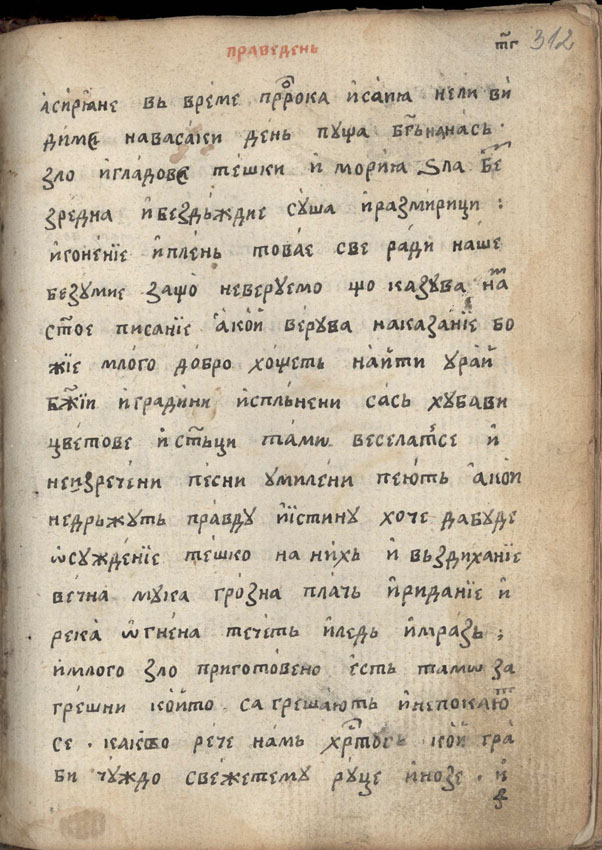 праведень
т҃г 312
асирїане въ време прⷪ҇рока и҆саїа нели ви
димѡ на васаки день пуща бг҃ь на насъ
зло и҆ гладове тешки и҆ морїа ѕла бе
зредна и҆ бездъждие суша и҆ размирици :
и҆ гоненїе и҆ плень това е све ради наше
безумие защо не веруемо що казува на
ст҃ое писанїе а кои верува наказанїе бо
жїе много добро хощеть наити у раи
бж҃їи и҆ градини и҆спльнени сась хубави
цветове и҆ ст҃ьци тамѡ веселатсе и҆
неизречени песни умилени пеють а кои
не дрьжуть правду и҆ истину хоче да буде
ѡсужденїе тешко на нихь и҆ вьздиханїе
вечна мука грозна плачь и҆ риданїе и҆
река ѡгнена течеть и҆ ледь и҆ мразь ;
и҆ млого зло приготовено есть тамѡ за
грешни които сагрешають и҆ не покаютⸯ
се . какво рече намь хрⷭ҇тось кои гра
би чуждо свежетему руце и҆ нозе . и҆